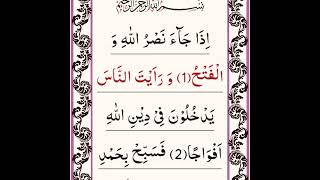 بِسْمِ اللهِ الرَّحْمٰنِ الرَّحِيْمِ
اِذَا جَآءَ نَصْرُ اللهِ وَ
الْفَتْحُ(1) وَ رَاَیْتَ النَّاسَ
یَدْخُلُوْنَ فِیْ دِیْنِ اللهِ
اَفْوَاجًا(2) فَسَبِّحْ بِحَمْدِ